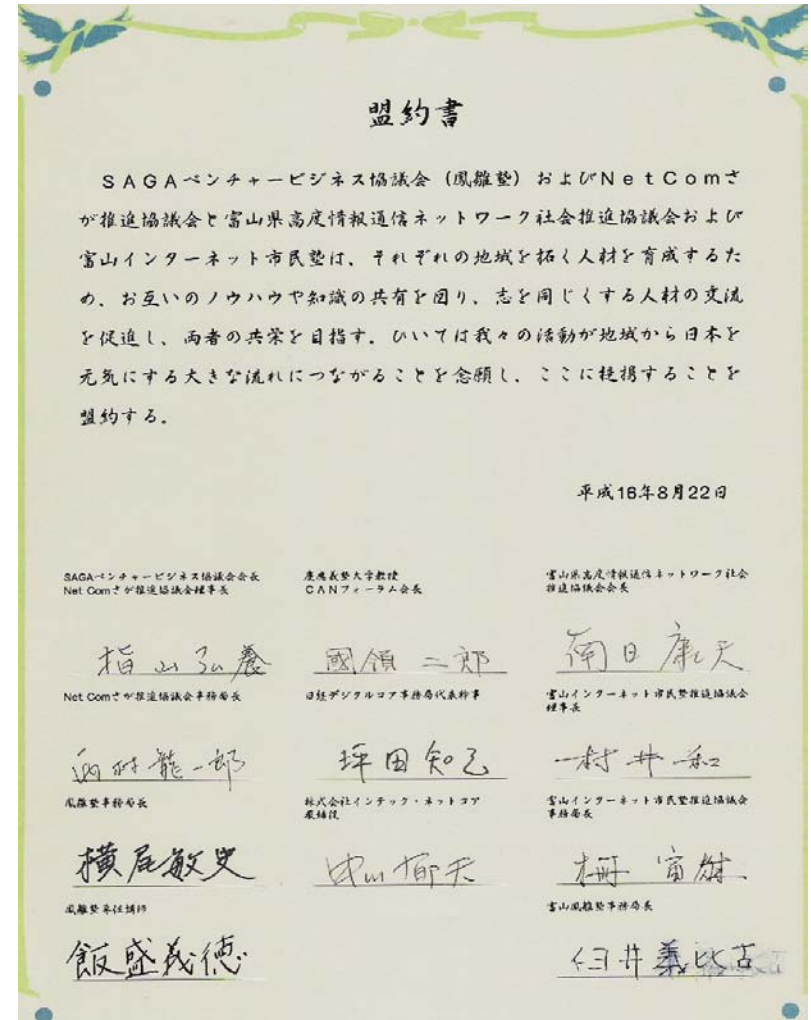 盟約書
SAGAベンチャービジネス協議会(鳳雛塾)およびNetComさ
が推進協議会と富山県高度情報通信ネットワーク社会推進協議会および
富山インターネット市民塾は、それぞれの地域を拓く人材を育成するた
め、お互いのノウハウや知識の共有を図り、志を同じくする人材の交流
を促進し、両者の共栄を目指す。ひいては我々の活動が地域から日本を
元気にする大きな流れにつながることを念願し、ここに提携することを
盟約する。
平成16年8月22日
SAGAベンチャービジネス協議会会長
Net Comさが推進協議会理事長
指山弘養
Net Comさが推進協議会事務局長
西村龍一郎
鳳雛塾事務局長
横尾敏史
鳳雛塾専任講師
飯盛義徳
慶應義塾大学教授
CANフォーラム会長
國領二郎
日経デジタルコア事務局代表幹事
坪田知己
株式会社インテック・ネットコア
取締役
中山郁夫
富山県高度情報通信ネットワーク社会
推進協議会会長
南日康夫
富山インターネット市民塾推進協議会
理事長
村井和
富山インターネット市民塾推進協議会
事務局長
柵富雄
富山鳳雛塾事務局長
臼井義比古